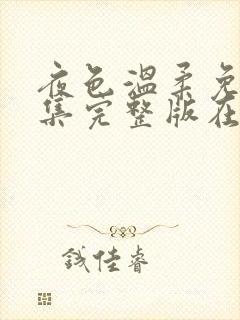 夜色温柔免
集完整版在
钱佳睿